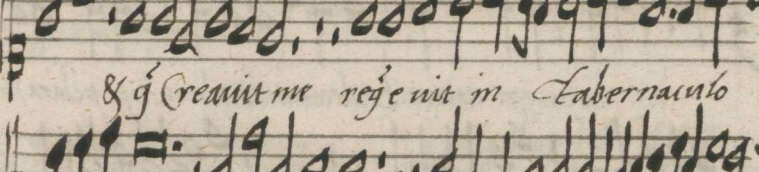 & q̃ Creauit me req̃euit in Tabernaculo